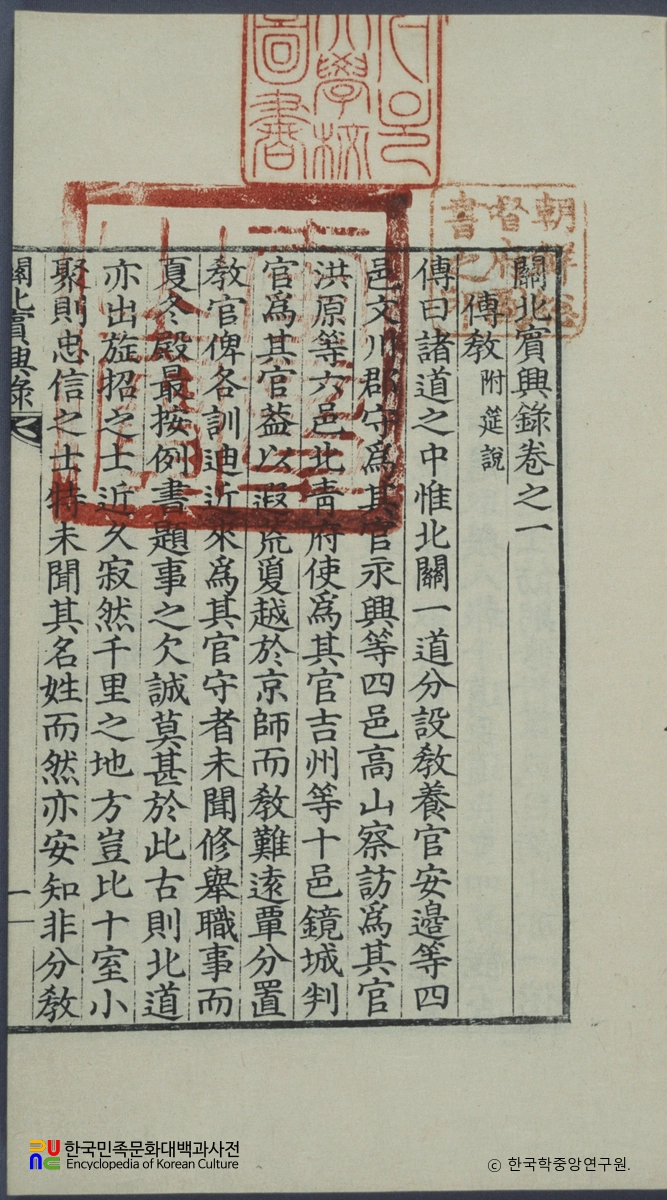 關北賓興錄卷之一
傳教 附筵說
傳曰諸道之中惟北關一道分設教養官安邊等四
邑文川郡守爲其官永興等四邑高山察訪爲其官
洪原等六邑北靑府使爲其官吉州等十邑鏡城判
官爲其官蓋以遐荒夐越於京師而教難遠覃分置
教官俾各訓迪近來爲其官守者未聞修舉職事而
夏冬殿最按例書題事之欠誠莫甚於此古則北道
亦出旋招之士近久寂然千里之地方豈比十室小
聚則忠信之士特未聞其名姓而然亦安知非分教
關北賓興錄
一
朝鮮總
督府圖
書之印
學校
圖書
한국민족문화대백과사전
Encyclopedia of Korean Culture
ⓒ 한국학중앙연구원.